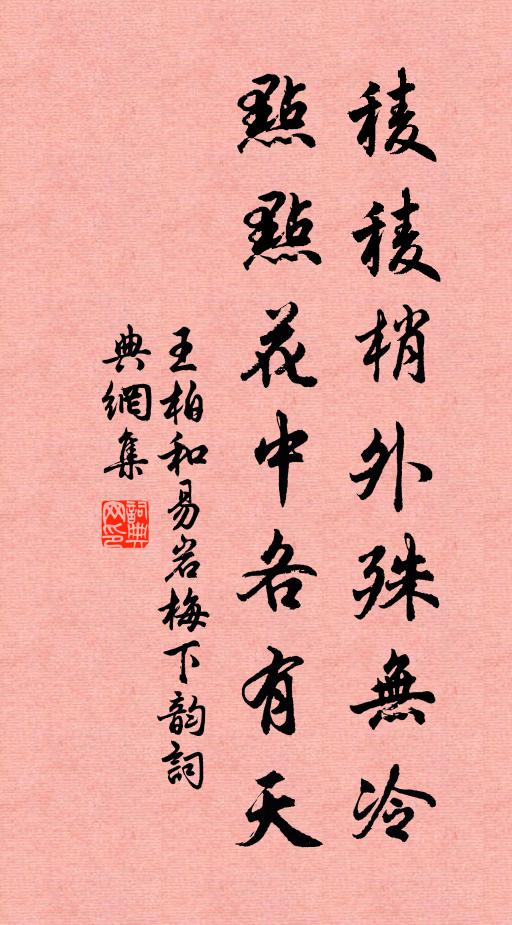 稜稜梢外殊無冷
點點花中各有天
王柏和易岩梅下韵詞
典網集
詞典網印